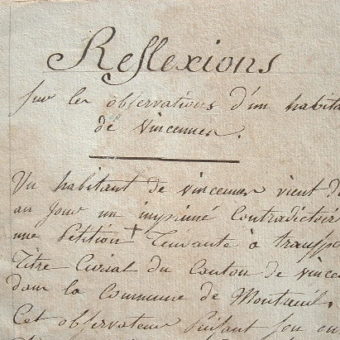 Reflexions
sur les observations d'un habita
de vincennes.
Un habitant de vincennes vient d
au jour un imprimé Contradictoir
une Petition + Tendante à transp
Titre Curial du Canton de vince
dans la Commune de Montreuil.
Cet observateur